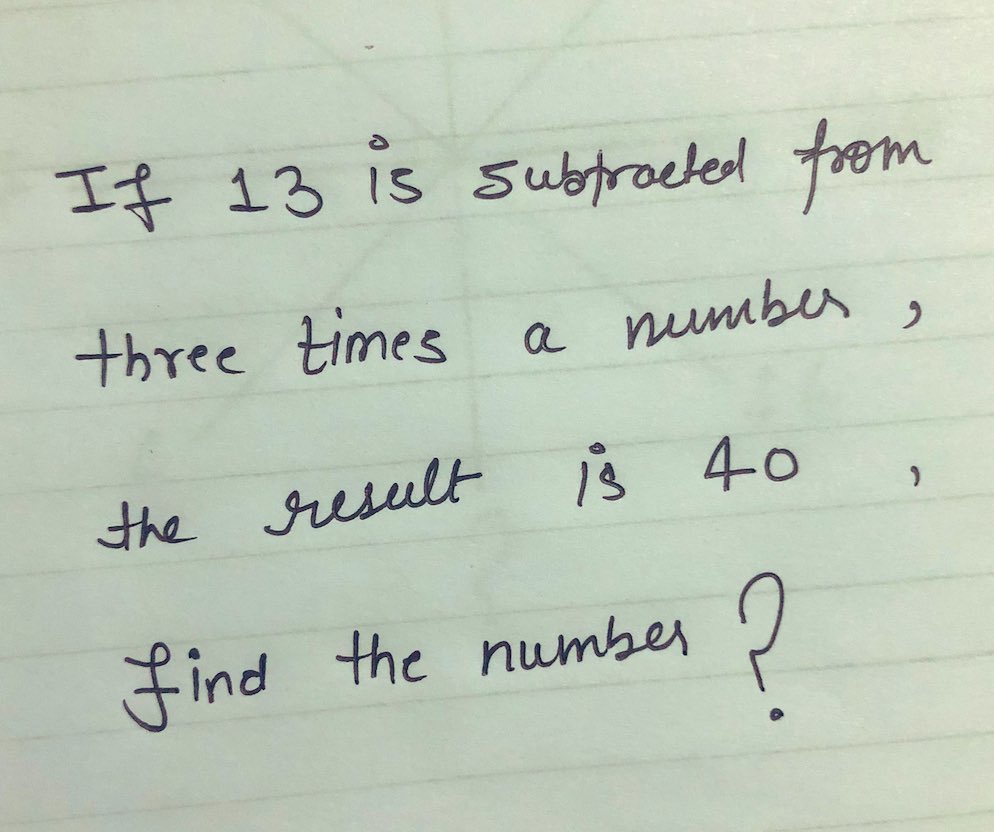 If 13 is subtracted from
three times a number,
the result is 40,
find the number?